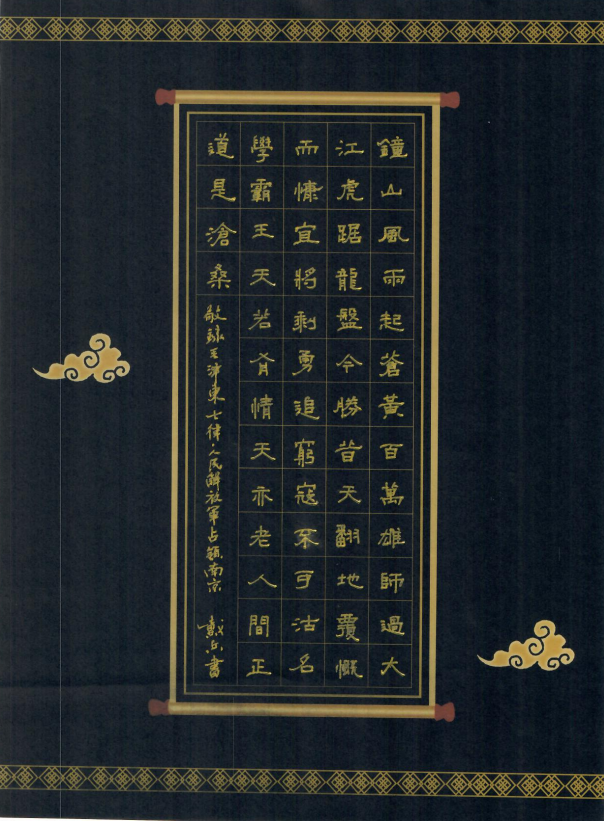 鐘山風雨起蒼黃百萬雄師過大
江虎踞龍盤今勝昔天翻地覆慨
而慷宜將剩勇追窮寇不可沽名
學霸王天若有情天亦老人間正
道是滄桑
敬錄毛澤東七律·人民解放軍占領南京 戴 書